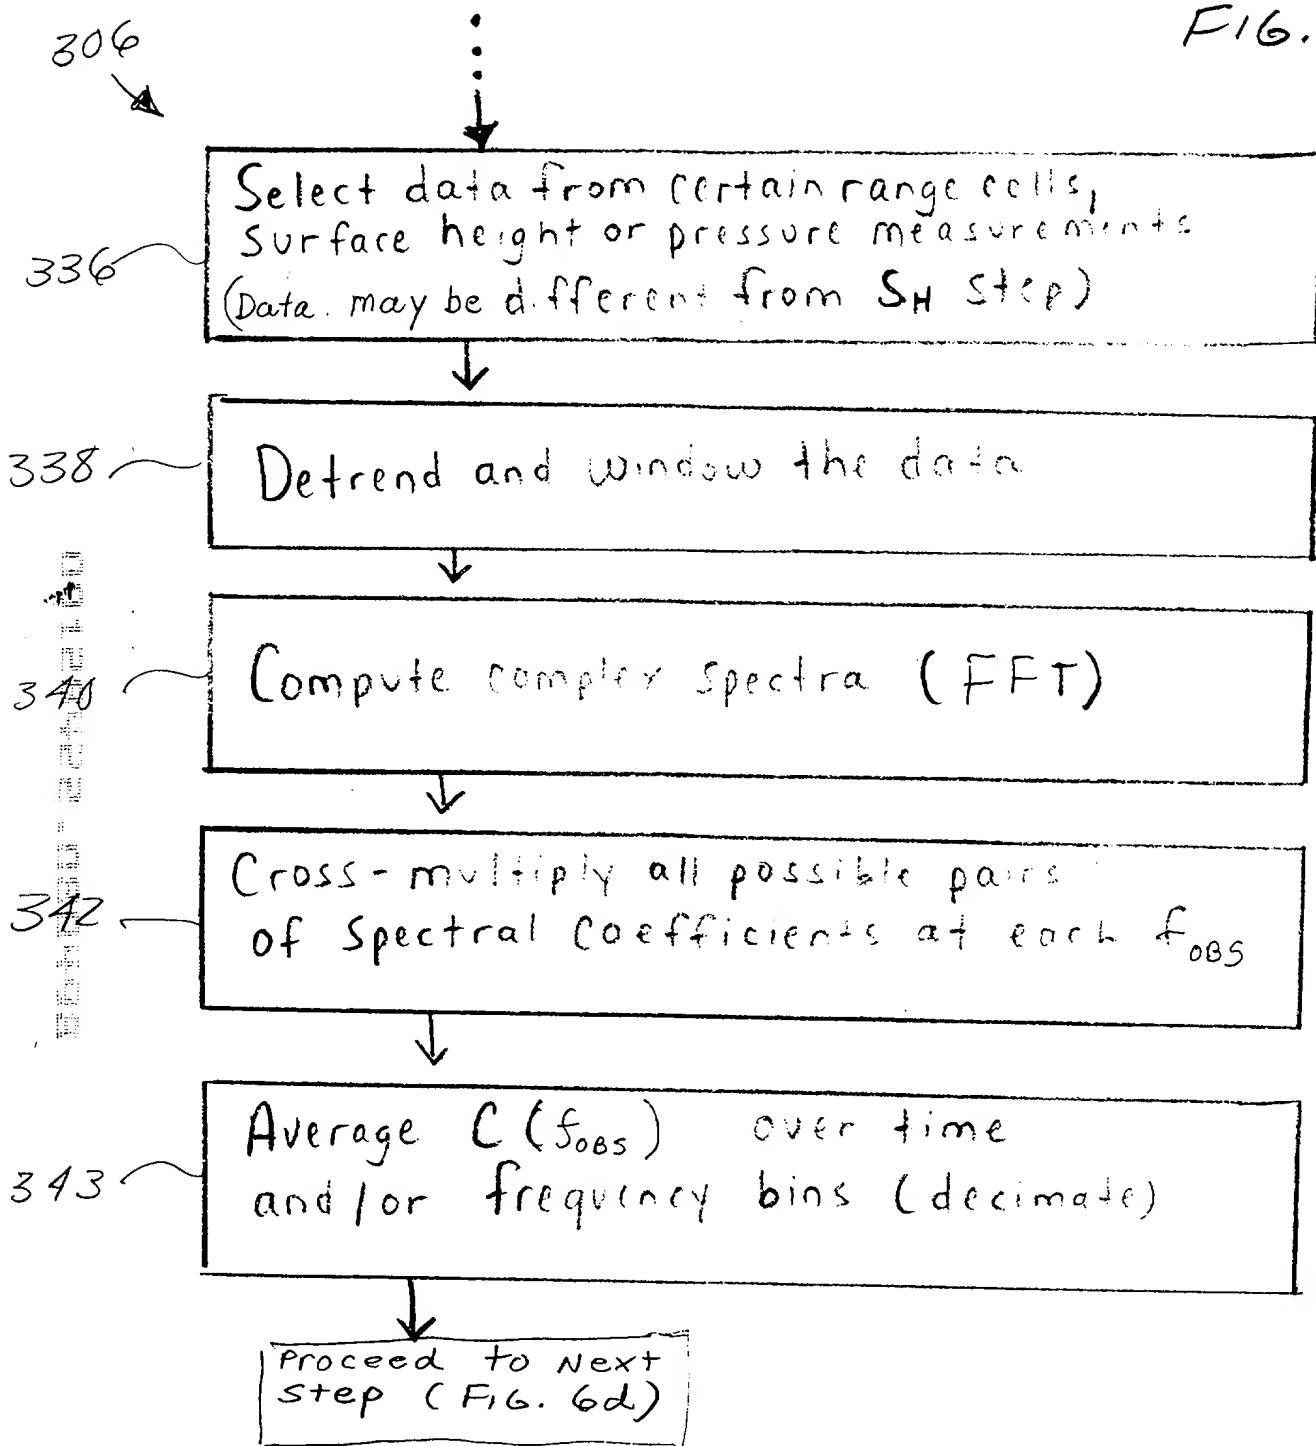 306
FIG.
Select data from certain range cells,
surface height or pressure measurements
(Data may be different from SH step)
336
338
Detrend and window the data
340
Compute complex spectra (FFT)
Cross-multiply all possible pairs
342
of spectral coefficients at each fOBS
Average C(fOBS) over time
343
and/or frequency bins (decimate)
Proceed to Next
step (FIG. 6d)